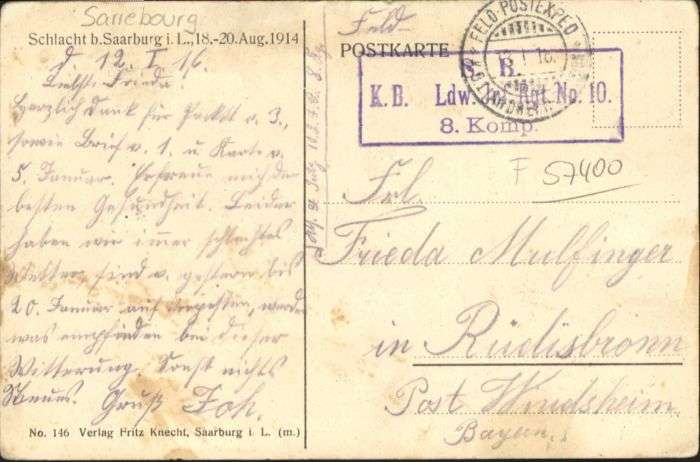 Sarrebourg
Schlacht b. Saarburg i. L., 18.-20. Aug. 1914
12. I. 16.
Liebste Frieda.
Herzlich Dank für Packet v. 3.,
sowie Brief v. 1. u. Karte v.
5. Januar. Erfreue mich der
besten Gesundheit. Leider
haben wir immer schlechtes
Wetter, sind v. gestern bis
20. Januar auf
was empfinden bei dieser
Witterung. Sonst nichts
Neues. Gruß Joh.
No. 146 Verlag Fritz Knecht, Saarburg i. L. (m.)
Feld
POSTKARTE
FELD-POSTEXPED
S. B.
K. B. Ldw. Rgt. No. 10.
8. Komp.
F 57400
Frl.
Frieda Mulfinger
in Rüdisbronn
Post Windsheim
Bayern.